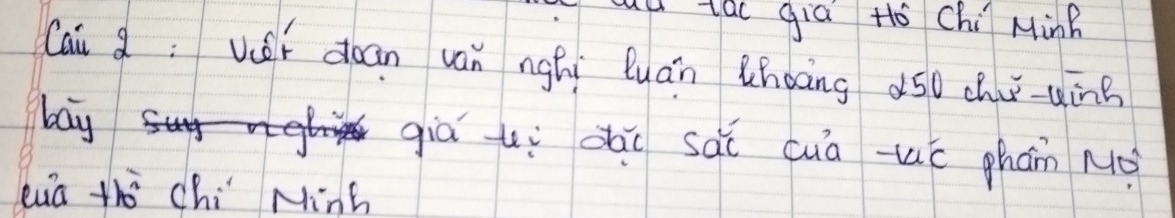 tác giả Hồ Chí Minh
Câu 2 : Viết đoạn văn nghị luận khoảng 250 chữ trình
bày suy nghĩ giá trị đặc sắc của tác phẩm Mộ
của Hồ Chí Minh